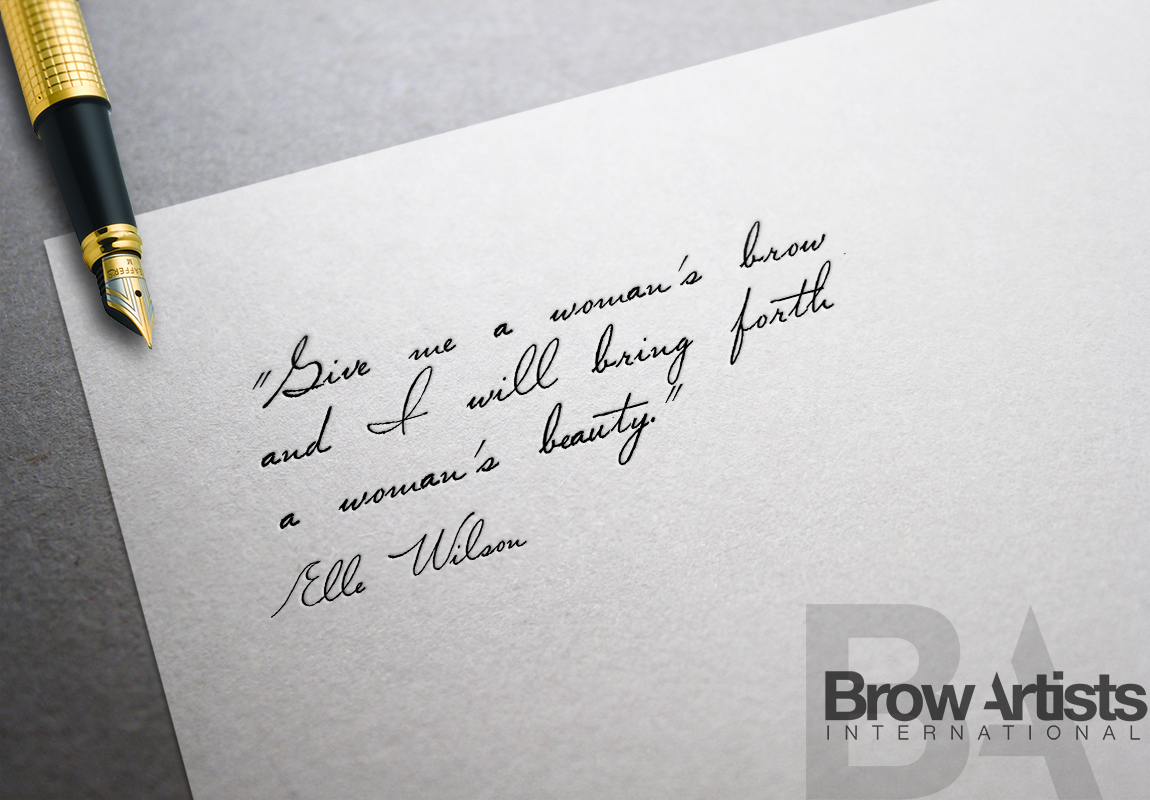 "Give me a woman's brow
and I will bring forth
a woman's beauty."
Elle Wilson
BA
Brow Artists
INTERNATIONAL